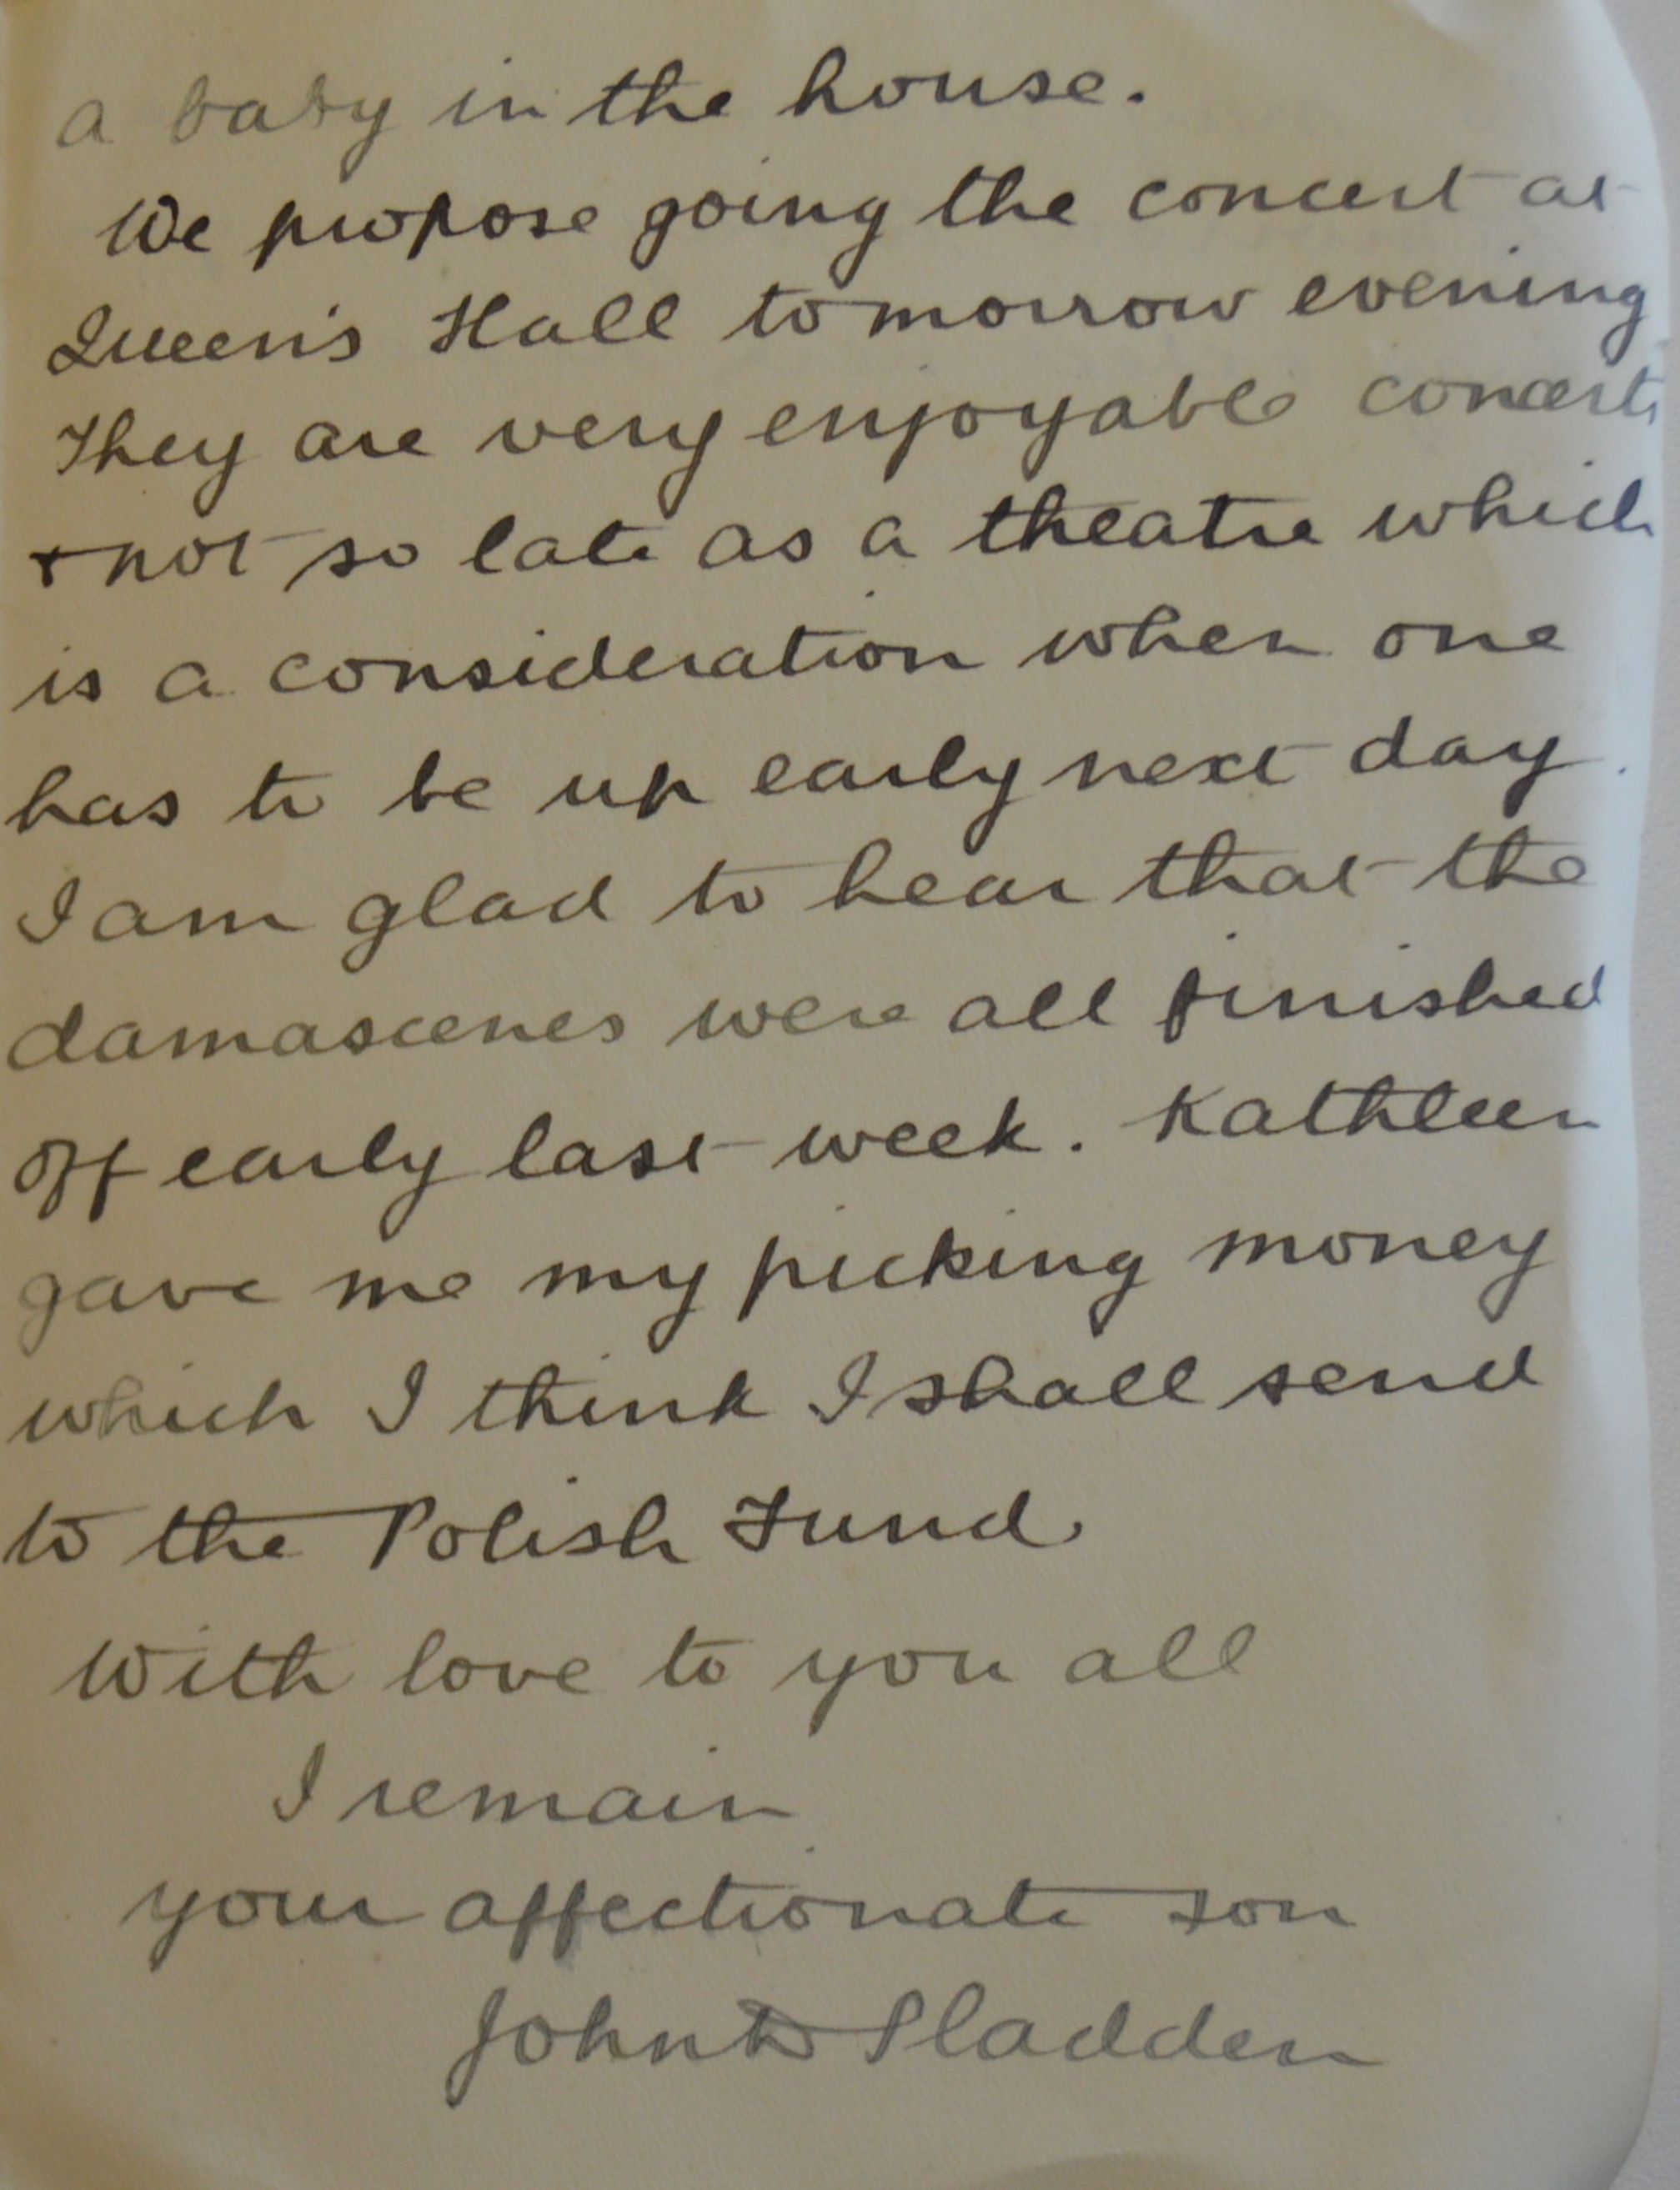 a baby in the house.
We propose going the concert at
Queen's Hall tomorrow evening
They are very enjoyable concerts
+ not so late as a theatre which
is a consideration when one
has to be up early next day.
I am glad to hear that the
damascenes were all finished
off early last week. Kathleen
gave me my picking money
which I think I shall send
to the Polish Fund.
With love to you all
I remain
your affectionate son
John D Sladden